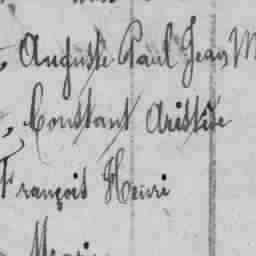 , Auguste Paul Jean M
, Constant Aristide
François Henri